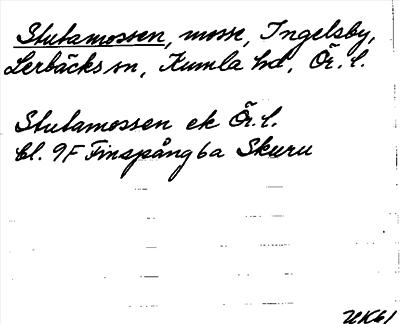 Stubamossen, mosse, Ingelsby,
Lerbäcks sn, Kumla hd, Ör. l.
Stubamossen ek Ör. l.
bl. 9F Finspång 6a Skuru
UK61